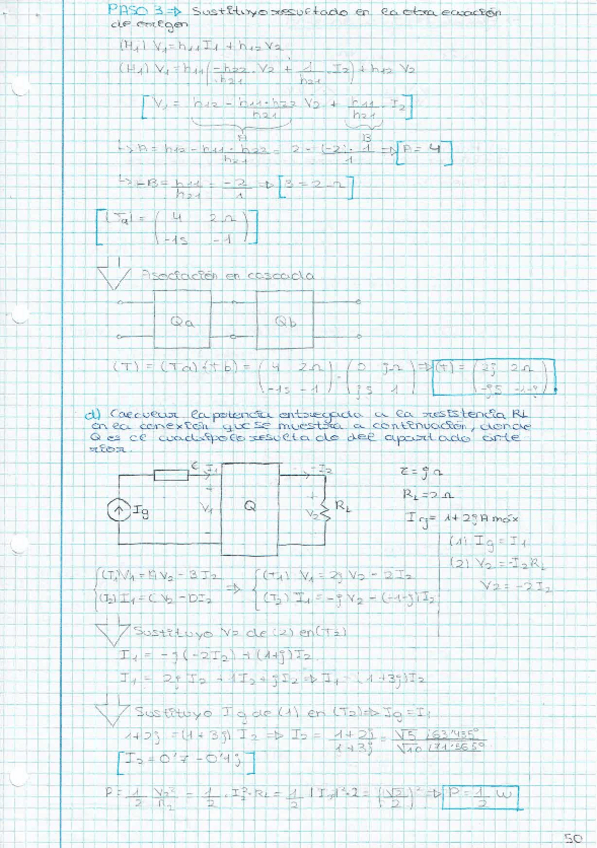 PASO 3 ⇒ Sustituyo resultado en la otra ecuación
de origen
(H1) V1 = h11 I1 + h12 V2
(H1) V1 = h11 (-h22/h21 · V2 + 1/h21 · I2) + h12 V2
[V1 = h12 - h11·h22/h21 V2 + h11/h21 · I2]
B
↳ A = h12 - h11·h22/h21 = 2 - (-2)·1/1 ⇒ [A = 4]
↳ -B = h11/h21 = -2/1 ⇒ [B = 2 Ω]
[(Ta) = (4 2Ω
-1S -1)]
Asociación en cascada
Qa Qb
(T) = (Ta)·(Tb) = (4 2Ω / -1S -1) · (0 jΩ / jS 1) ⇒ (T) = (2j 2Ω / -jS -1-j)
d) Calcular la potencia entregada a la resistencia RL
en la conexión que se muestra a continuación, donde
Q es el cuadripolo resultado del apartado ante
rior.
I1 -I2
Ig + V1 - Q + V2 - RL
= j Ω
RL = 2 Ω
Ig = 1+2j A máx
(1) Ig = I1
(2) V2 = -I2 RL
V2 = -2 I2
(T1) V1 = A V2 - B I2 ⇒ (T1) V1 = 2j V2 - 2 I2
(T2) I1 = C V2 - D I2 (T2) I1 = -j V2 - (-1-j) I2
Sustituyo V2 de (2) en (T2)
I1 = -j (-2 I2) + (1+j) I2
I1 = 2j I2 + 1 I2 + j I2 ⇒ I1 = (1+3j) I2
Sustituyo Ig de (1) en (T2) ⇒ Ig = I1
1+2j = (1+3j) I2 ⇒ I2 = 1+2j/1+3j = √5 |63'435º/√10 |71'565º
[I2 = 0'7 - 0'1j]
P = 1/2 V2²/RL = 1/2 · I2² · RL = 1/2 |I2|² · 2 = (√2/2)² ⇒ P = 1/2 W
50